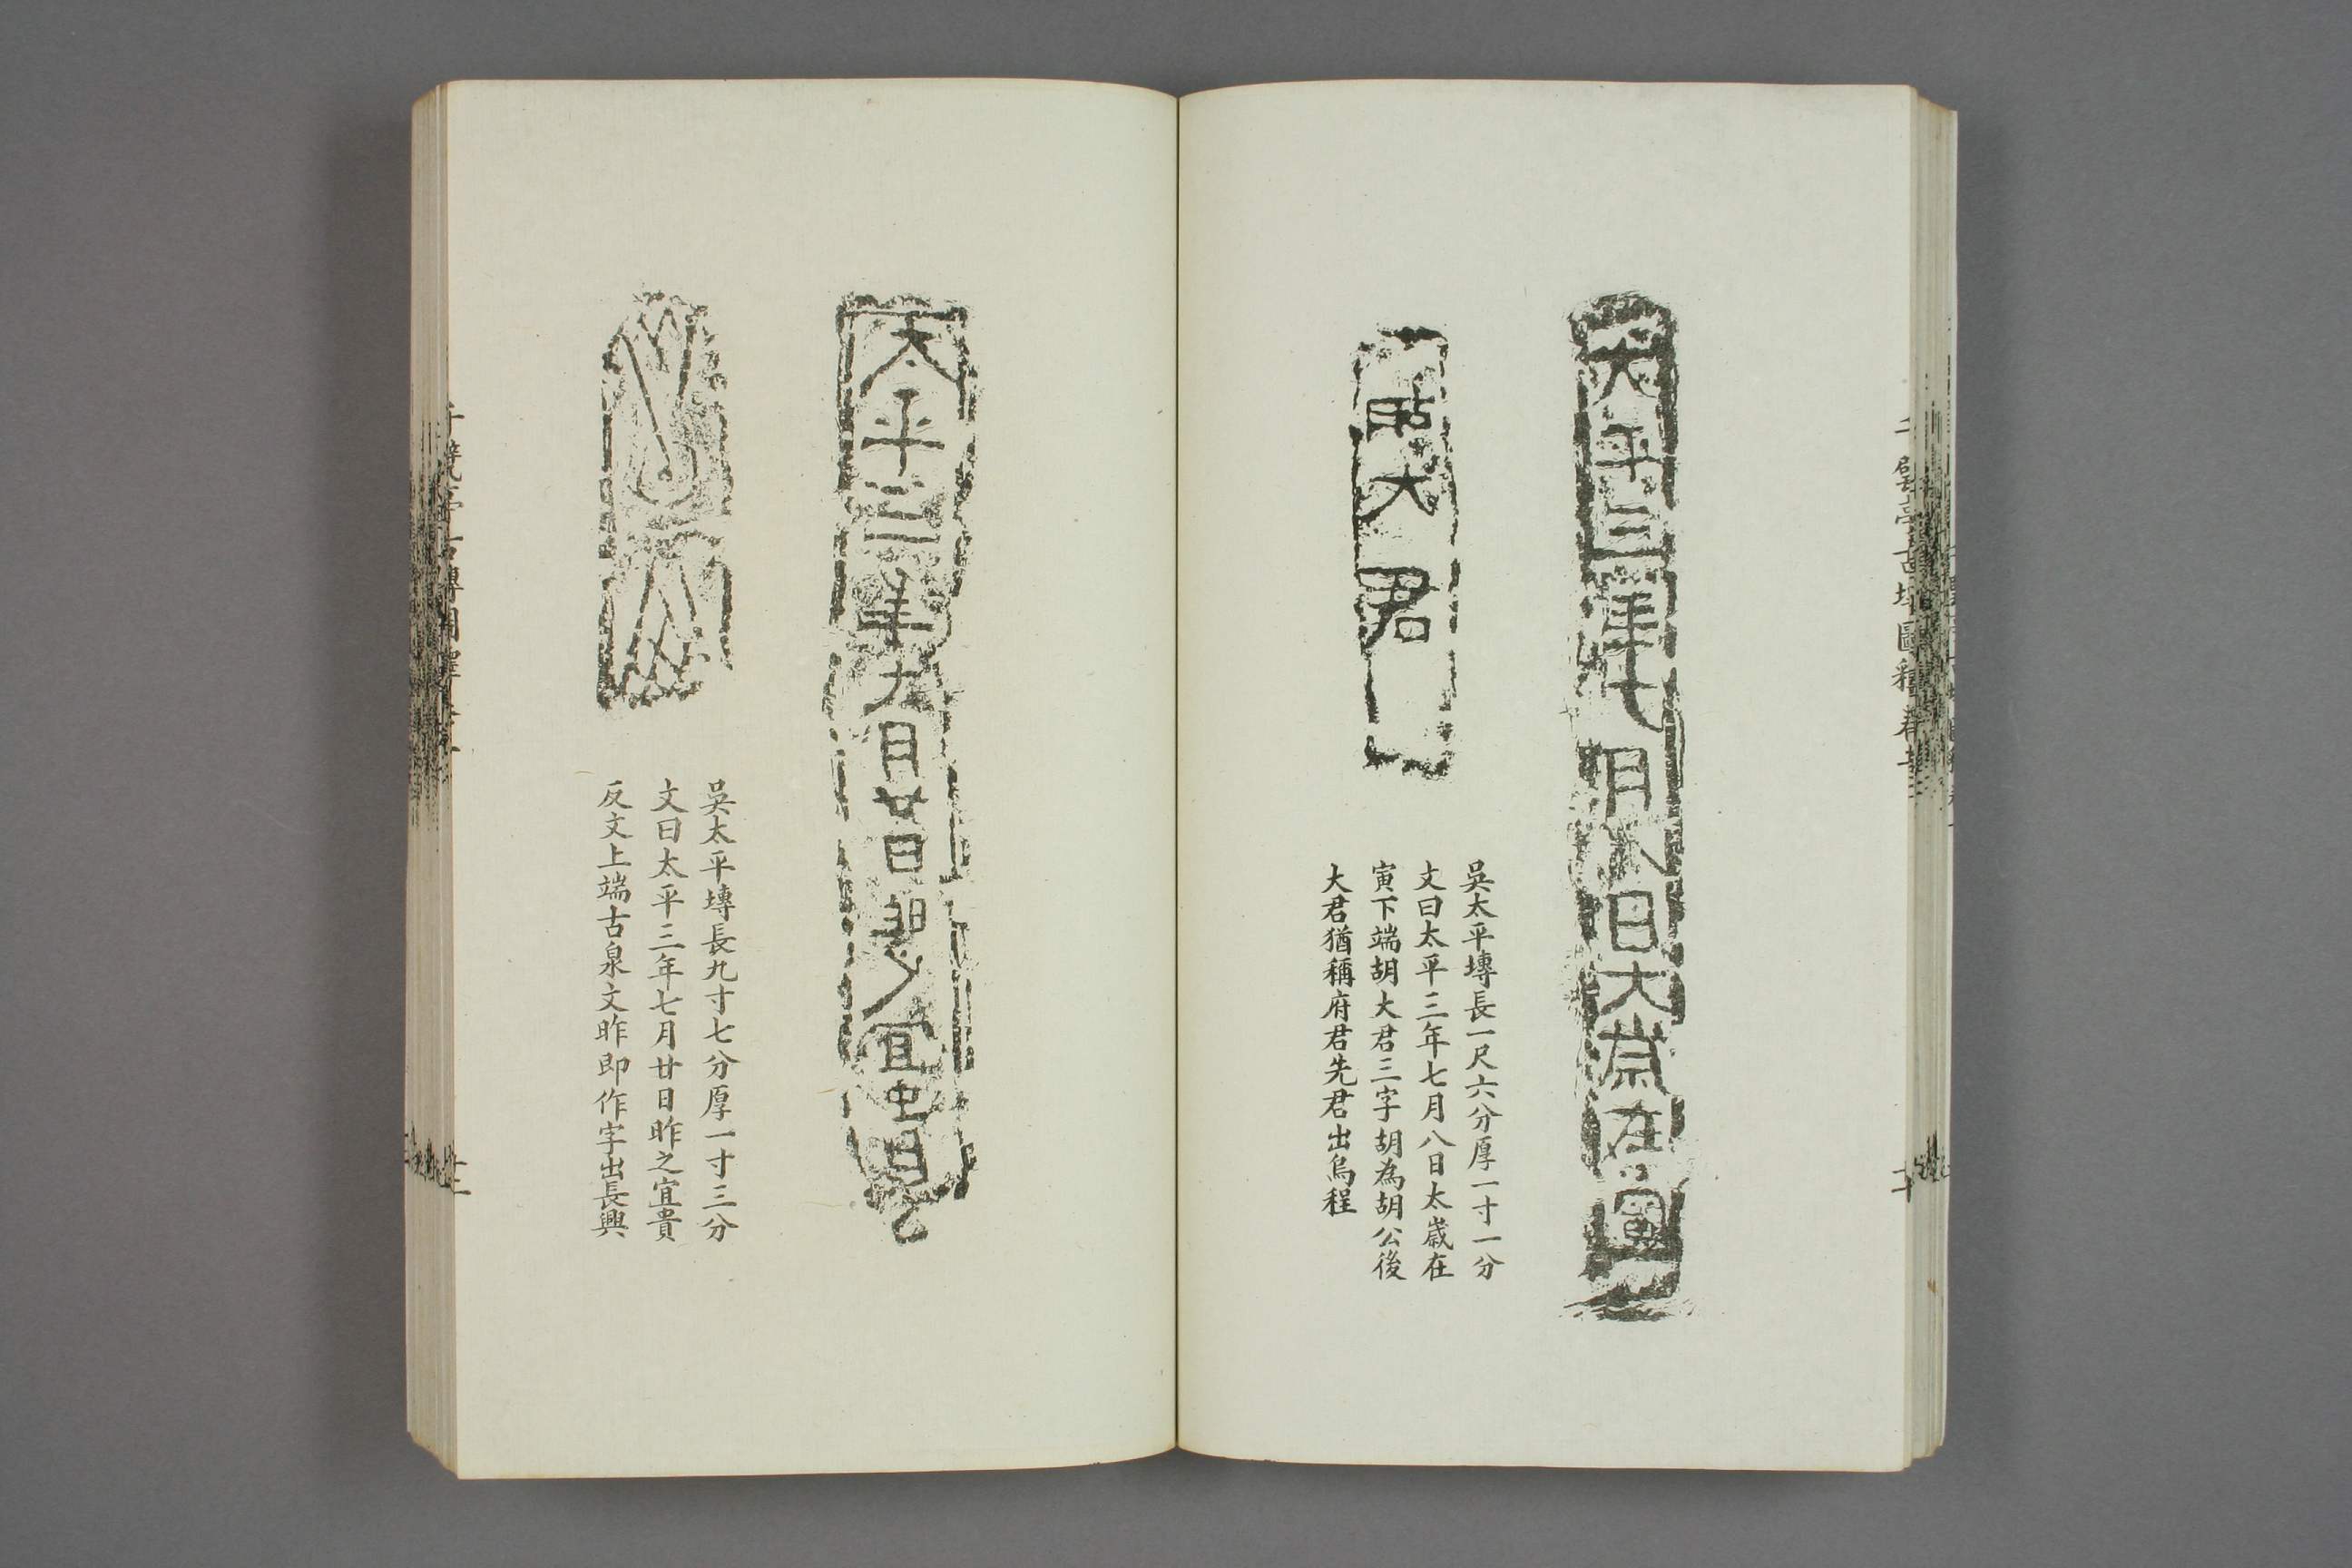 太平三年七月八日大歲在寅
胡大君
吳太平塼長一尺六分厚一寸一分
文曰太平三年七月八日太歲在
寅下端胡大君三字胡為胡公後
大君猶稱府君先君出烏程
太平三年七月廿日
吳太平塼長九寸七分厚一寸三分
文曰太平三年七月廿日昨之宜貴
反文上端古泉文昨即作字出長興